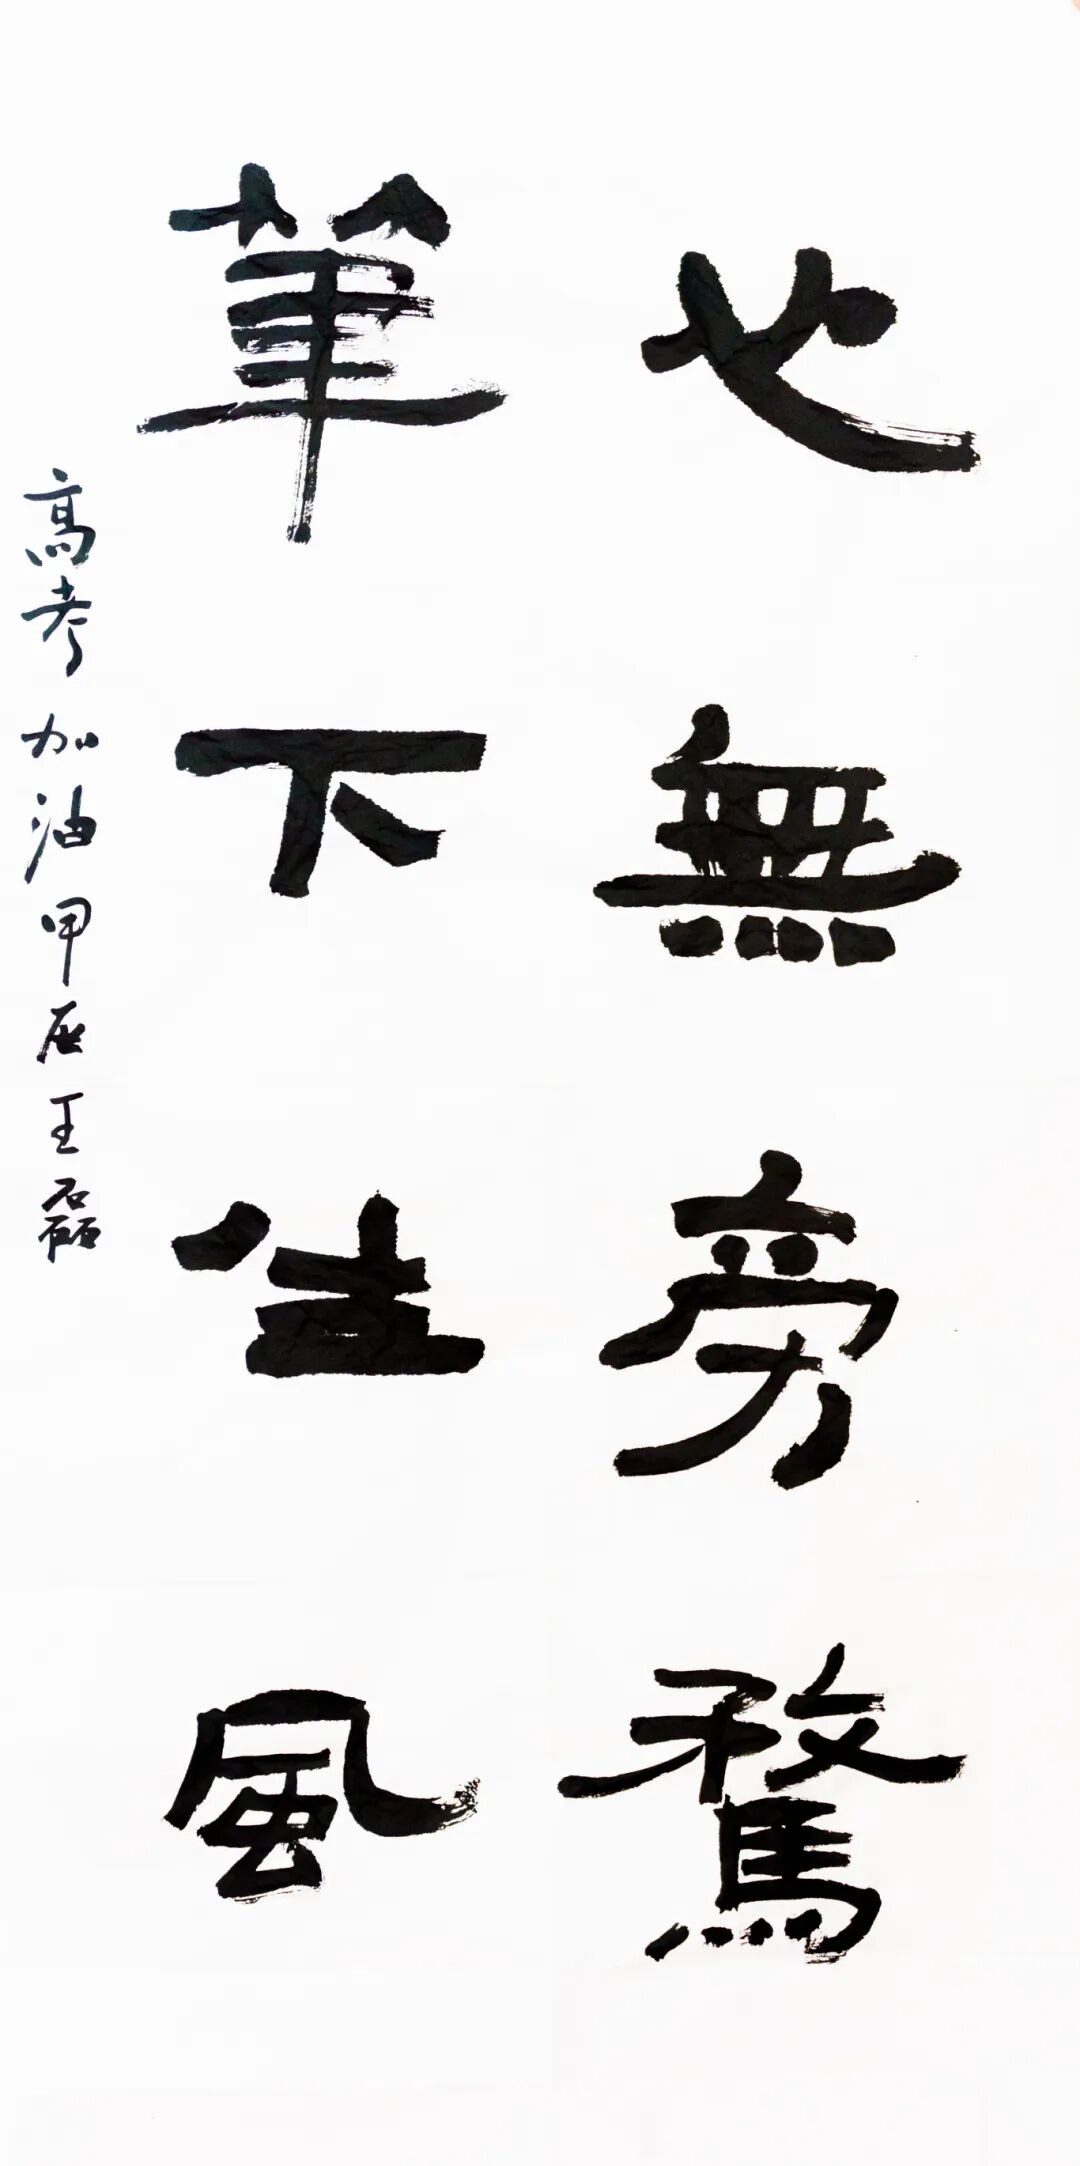 心無旁騖
筆下生風
高考加油甲辰王磊